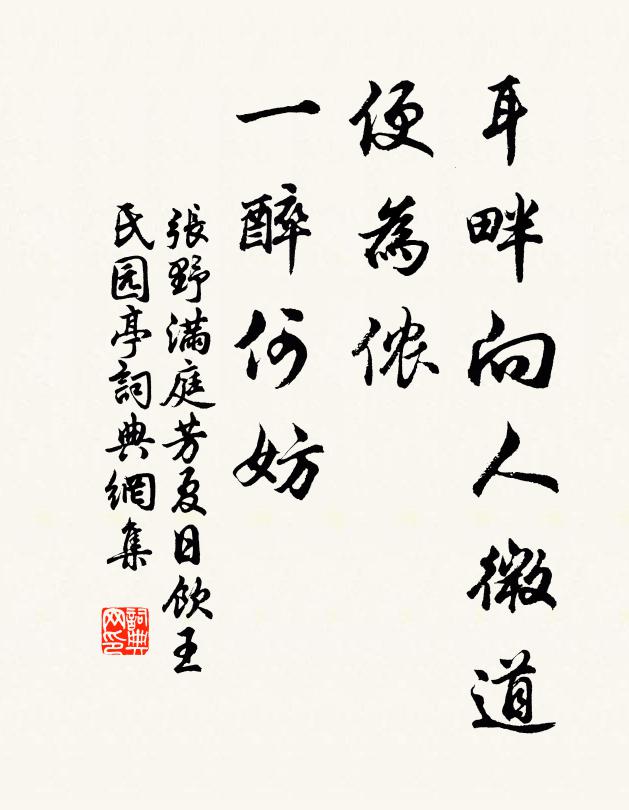 耳畔向人微道
便為侬
一醉何妨
張野滿庭芳夏日飲王
氏园亭詞典網集
詞典网印